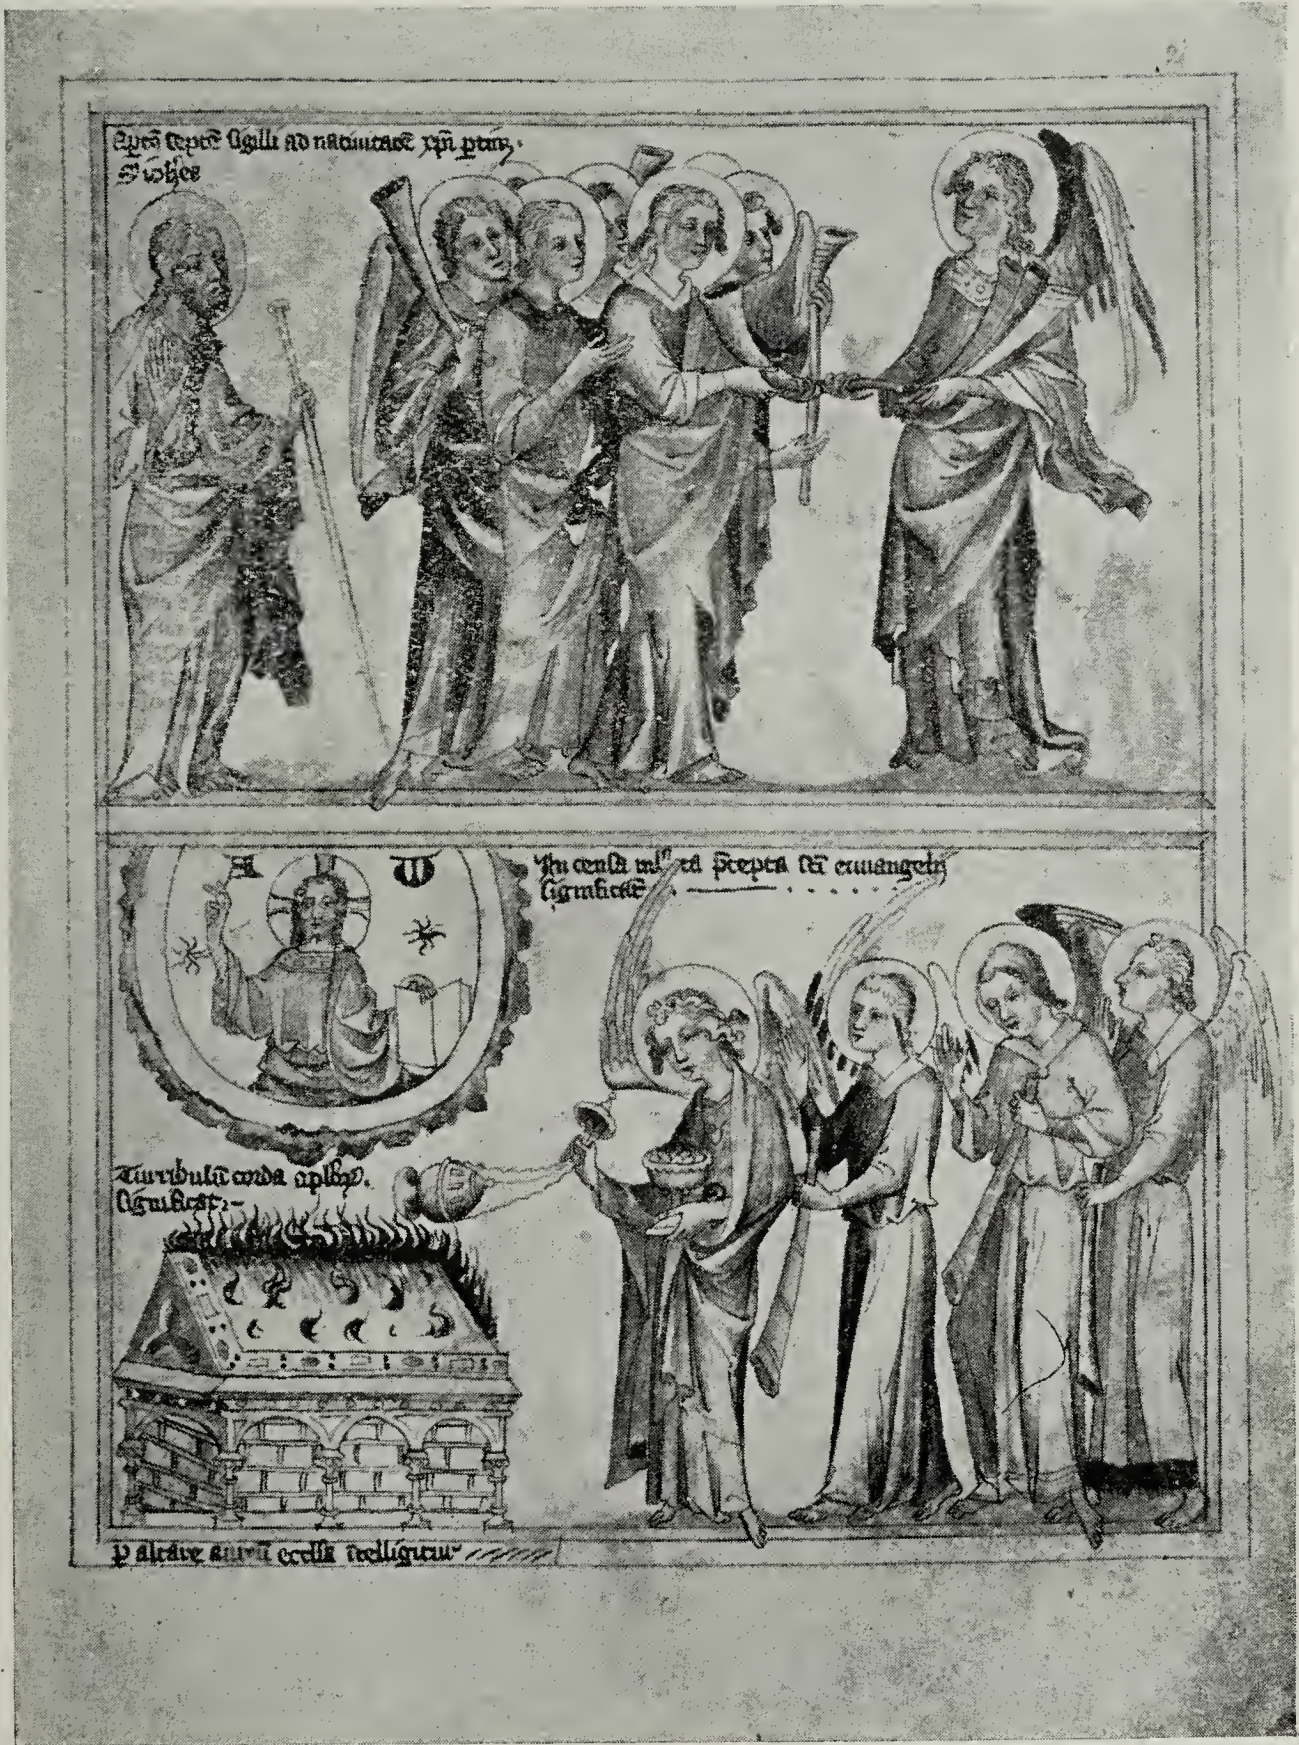 Aptõ septẽ sigilli ad natiuitatẽ xpĩ ꝑtin&
S iohẽs
A ω
In censa ml̃ta p̃cepta sc̃i euuangelij
significãt
Turribulũ corda apl̃oꝝ
significat
ꝑ altare aureũ ecclĩa ĩtelligitur